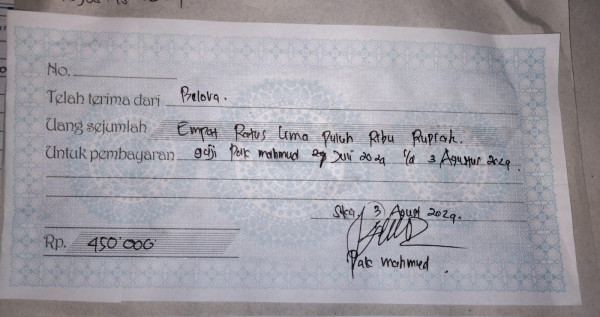 No.
Telah terima dari Belova.
Uang sejumlah Empat Ratus Lima Puluh Ribu Rupiah.
Untuk pembayaran gaji Pak mahmud 29 Juli 2024 s/d 3 Agustus 2024.
Ska, 3 Agust 2024.
Rp. 450.000
Pak mahmud.